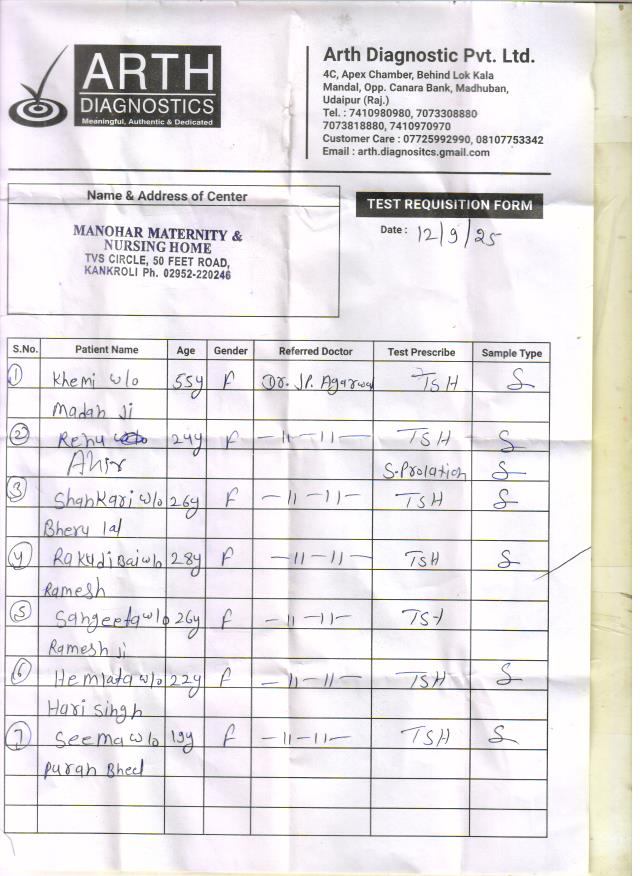 ARTH
DIAGNOSTICS
Meaningful, Authentic & Dedicated
Arth Diagnostic Pvt. Ltd.
4C, Apex Chamber, Behind Lok Kala
Mandal, Opp. Canara Bank, Madhuban,
Udaipur (Raj.)
Tel. : 7410980980, 7073308880
7073818880, 7410970970
Customer Care : 07725992990, 08107753342
Email : arth.diagnositcs.gmail.com
Name & Address of Center
MANOHAR MATERNITY &
NURSING HOME
TVS CIRCLE, 50 FEET ROAD,
KANKROLI Ph. 02952-220246
TEST REQUISITION FORM
Date : 12/9/25
S.No. Patient Name Age Gender Referred Doctor Test Prescribe Sample Type
1 Khemi w/o 55y F Dr. J.P. Agarwal TSH S
Madan Ji
2 Renu 24y F -11-11- TSH S
Ahir S.Prolation S
3 Shankari w/o 26y F -11-11- TSH S
Bheru lal
4 Rakudi Bai w/o 28y F -11-11- TSH S
Ramesh
5 Sangeeta w/o 26y F -11-11- TSH
Ramesh Ji
6 Hemlata w/o 22y F -11-11- TSH S
Hari Singh
7 Seema w/o 19y F -11-11- TSH S
Puran Bheel